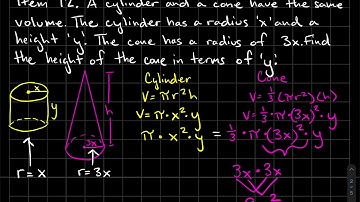 Item 12. A cylinder and a cone have the same
volume. The cylinder has a radius 'x' and a
height 'y'. The cone has a radius of 3x. Find
the height of the cone in terms of 'y'.
Cylinder
V = πr²h
V = π·x²·y
π·x²·y
Cone
V = 1/3(πr²)(h)
V = 1/3·π·(3x)²·y
= 1/3·π·(3x)²·y
3x·3x
x
y
r = x
h
3x
r = 3x